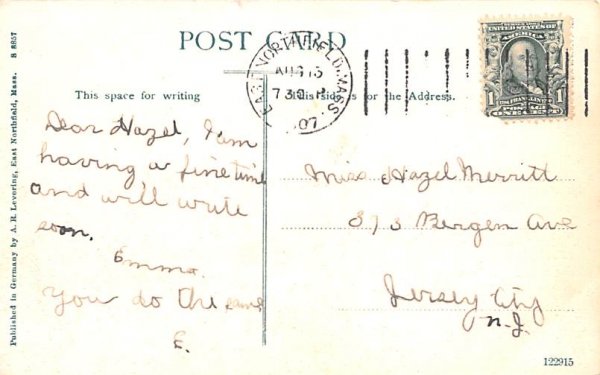 POST CARD
EAST NORTHFIELD, MASS.
AUG 15
7 30 P
07
SERIES 1902
UNITED STATES OF AMERICA
FRANKLIN
POSTAGE
ONE CENT
This space for writing
This side is for the Address.
Dear Hazel, I am
having a fine time
and will write
soon.
Emma.
You do the same
E.
Miss Hazel Merritt
373 Bergen Ave
Jersey City
N.J.
Published in Germany by A. R. Levering, East Northfield, Mass. B 8657
122915